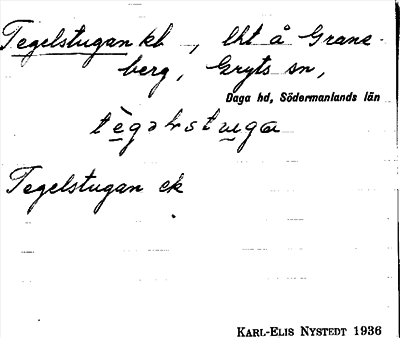 Tegelstugan kb , lht å Grane-
berg, Gryts sn,
Daga hd, Södermanlands län
tègəlstuga
Tegelstugan ek
KARL-ELIS NYSTEDT 1936